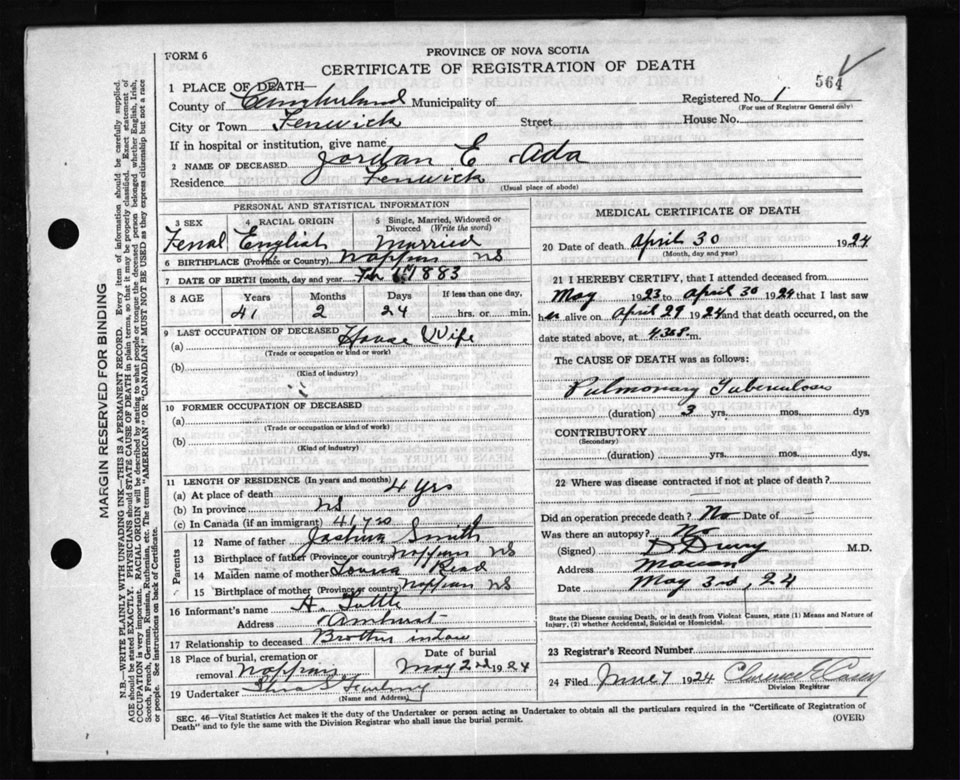 FORM 6
PROVINCE OF NOVA SCOTIA
CERTIFICATE OF REGISTRATION OF DEATH
564
1 PLACE OF DEATH—
County of Cumberland Municipality of
Registered No. 1
(For use of Registrar General only)
City or Town Fenwick Street House No.
If in hospital or institution, give name
2 NAME OF DECEASED Jordan E Ada
Residence Fenwick
(Usual place of abode)
PERSONAL AND STATISTICAL INFORMATION
3 SEX Femal
4 RACIAL ORIGIN English
5 Single, Married, Widowed or Divorced (Write the word) Married
6 BIRTHPLACE (Province or Country) Nappan NS
7 DATE OF BIRTH (month, day and year) Feb 6 1883
8 AGE Years Months Days If less than one day,
41 2 24 hrs. or min.
9 LAST OCCUPATION OF DECEASED House Wife
(a)
(Trade or occupation or kind or work)
(b)
(Kind of industry)
10 FORMER OCCUPATION OF DECEASED
(a)
(Trade or occupation or kind of work)
(b)
(Kind of industry)
11 LENGTH OF RESIDENCE (In years and months)
(a) At place of death 4 yrs
(b) In province NS
(c) In Canada (if an immigrant) 41 yrs
Parents
12 Name of father Joshua Smith
13 Birthplace of father (Province or country) Nappan NS
14 Maiden name of mother Louisa Read
15 Birthplace of mother (Province or country) Nappan NS
16 Informant's name A. Tuttle
Address Amherst
17 Relationship to deceased Brother inlaw
18 Place of burial, cremation or removal Nappan
Date of burial May 2nd 1924
19 Undertaker
(Name and Address)
MEDICAL CERTIFICATE OF DEATH
20 Date of death April 30 1924
(Month, day and year)
21 I HEREBY CERTIFY, that I attended deceased from
May 1923 to April 30 1924 that I last saw
her alive on April 29 1924 and that death occurred, on
date stated above, at m.
The CAUSE OF DEATH was as follows:
Pulmonary Tuberculosis
(duration) 3 yrs. mos. dys
CONTRIBUTORY
(Secondary)
(duration) yrs. mos. dys.
22 Where was disease contracted if not at place of death?
Did an operation precede death? No Date of
Was there an autopsy? No
(Signed) D Drury M.D.
Address Maccan
Date May 3rd, 24
State the Disease causing Death, or in death from Violent Causes, state (1) Means and Nature of
Injury, (2) whether Accidental, Suicidal or Homicidal.
23 Registrar's Record Number
24 Filed June 7 1924 Clarence E Casey
Division Registrar
SEC. 46—Vital Statistics Act makes it the duty of the Undertaker or person acting as Undertaker to obtain all the particulars required in the "Certificate of Registration of
Death" and to fyle the same with the Division Registrar who shall issue the burial permit.
(OVER)
MARGIN RESERVED FOR BINDING
N.B.—WRITE PLAINLY WITH UNFADING INK—THIS IS A PERMANENT RECORD. Every item of information should be carefully supplied.
AGE should be stated EXACTLY. PHYSICIANS should STATE CAUSE OF DEATH in plain terms, so that it may be properly classified. Exact statement of
OCCUPATION is very important. RACIAL ORIGIN will be described by stating to what people or tongue the deceased person belonged whether English, Irish,
Scotch, French, German, Russian, Ruthenian, etc. The terms "AMERICAN" OR "CANADIAN" MUST NOT BE USED as they express citizenship but not a race
or people. See instructions on back of Certificate.